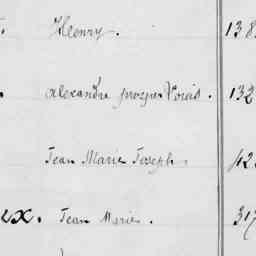 Henry. 138
Alexandre prosper Louis. 132
Jean Marie Joseph. 42
ex. Jean Marie. 317